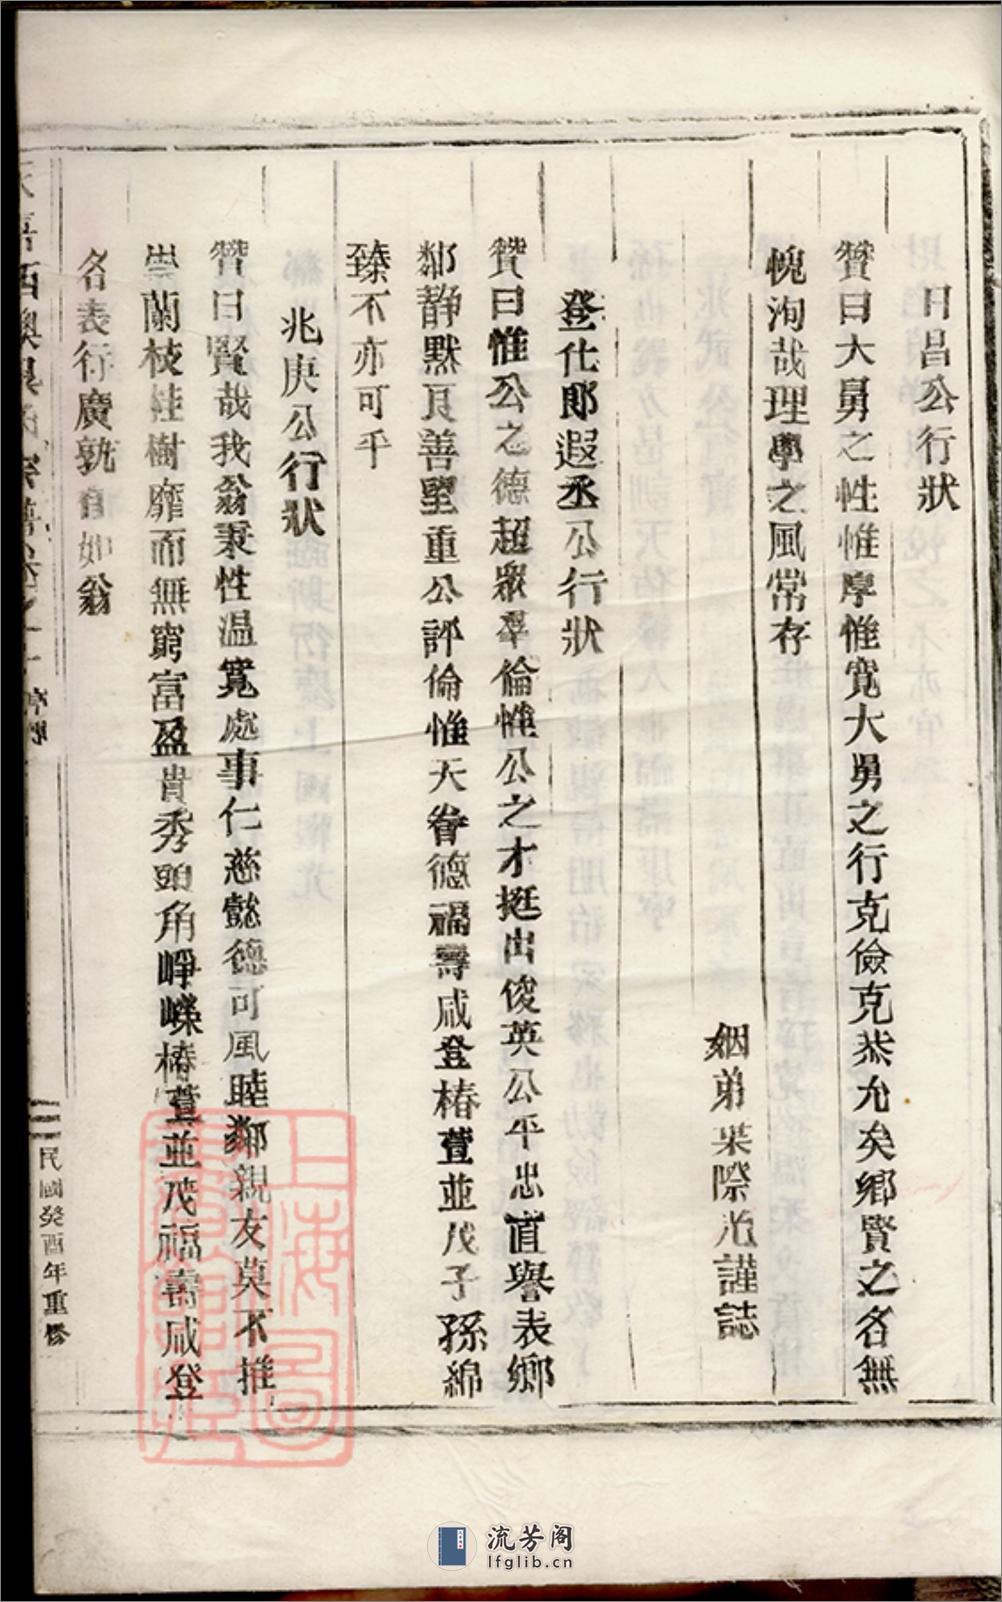 日昌公行狀
贊曰大舅之性惟厚惟寬大舅之行克儉克恭允矣鄉賢之名無
愧洵哉理學之風常存
姻弟葉際光謹誌
登仕郎遐丞公行狀
贊曰惟公之德超眾羣倫惟公之才挺出俊英公平忠直譽表鄉
鄰靜默良善望重公評倫惟天眷德福壽咸登椿萱並茂子孫綿
臻不亦可乎
兆庚公行狀
贊曰賢哉我翁秉性温寬處事仁慈懿德可風睦鄰親友莫不推
崇蘭枝桂樹靡而無窮富盈貴秀頭角崢嶸椿萱並茂福壽咸登
名表行廣孰有如翁
宗譜卷之一
民國癸酉年重修
上海圖書館藏
流芳阁
lfglib.cn